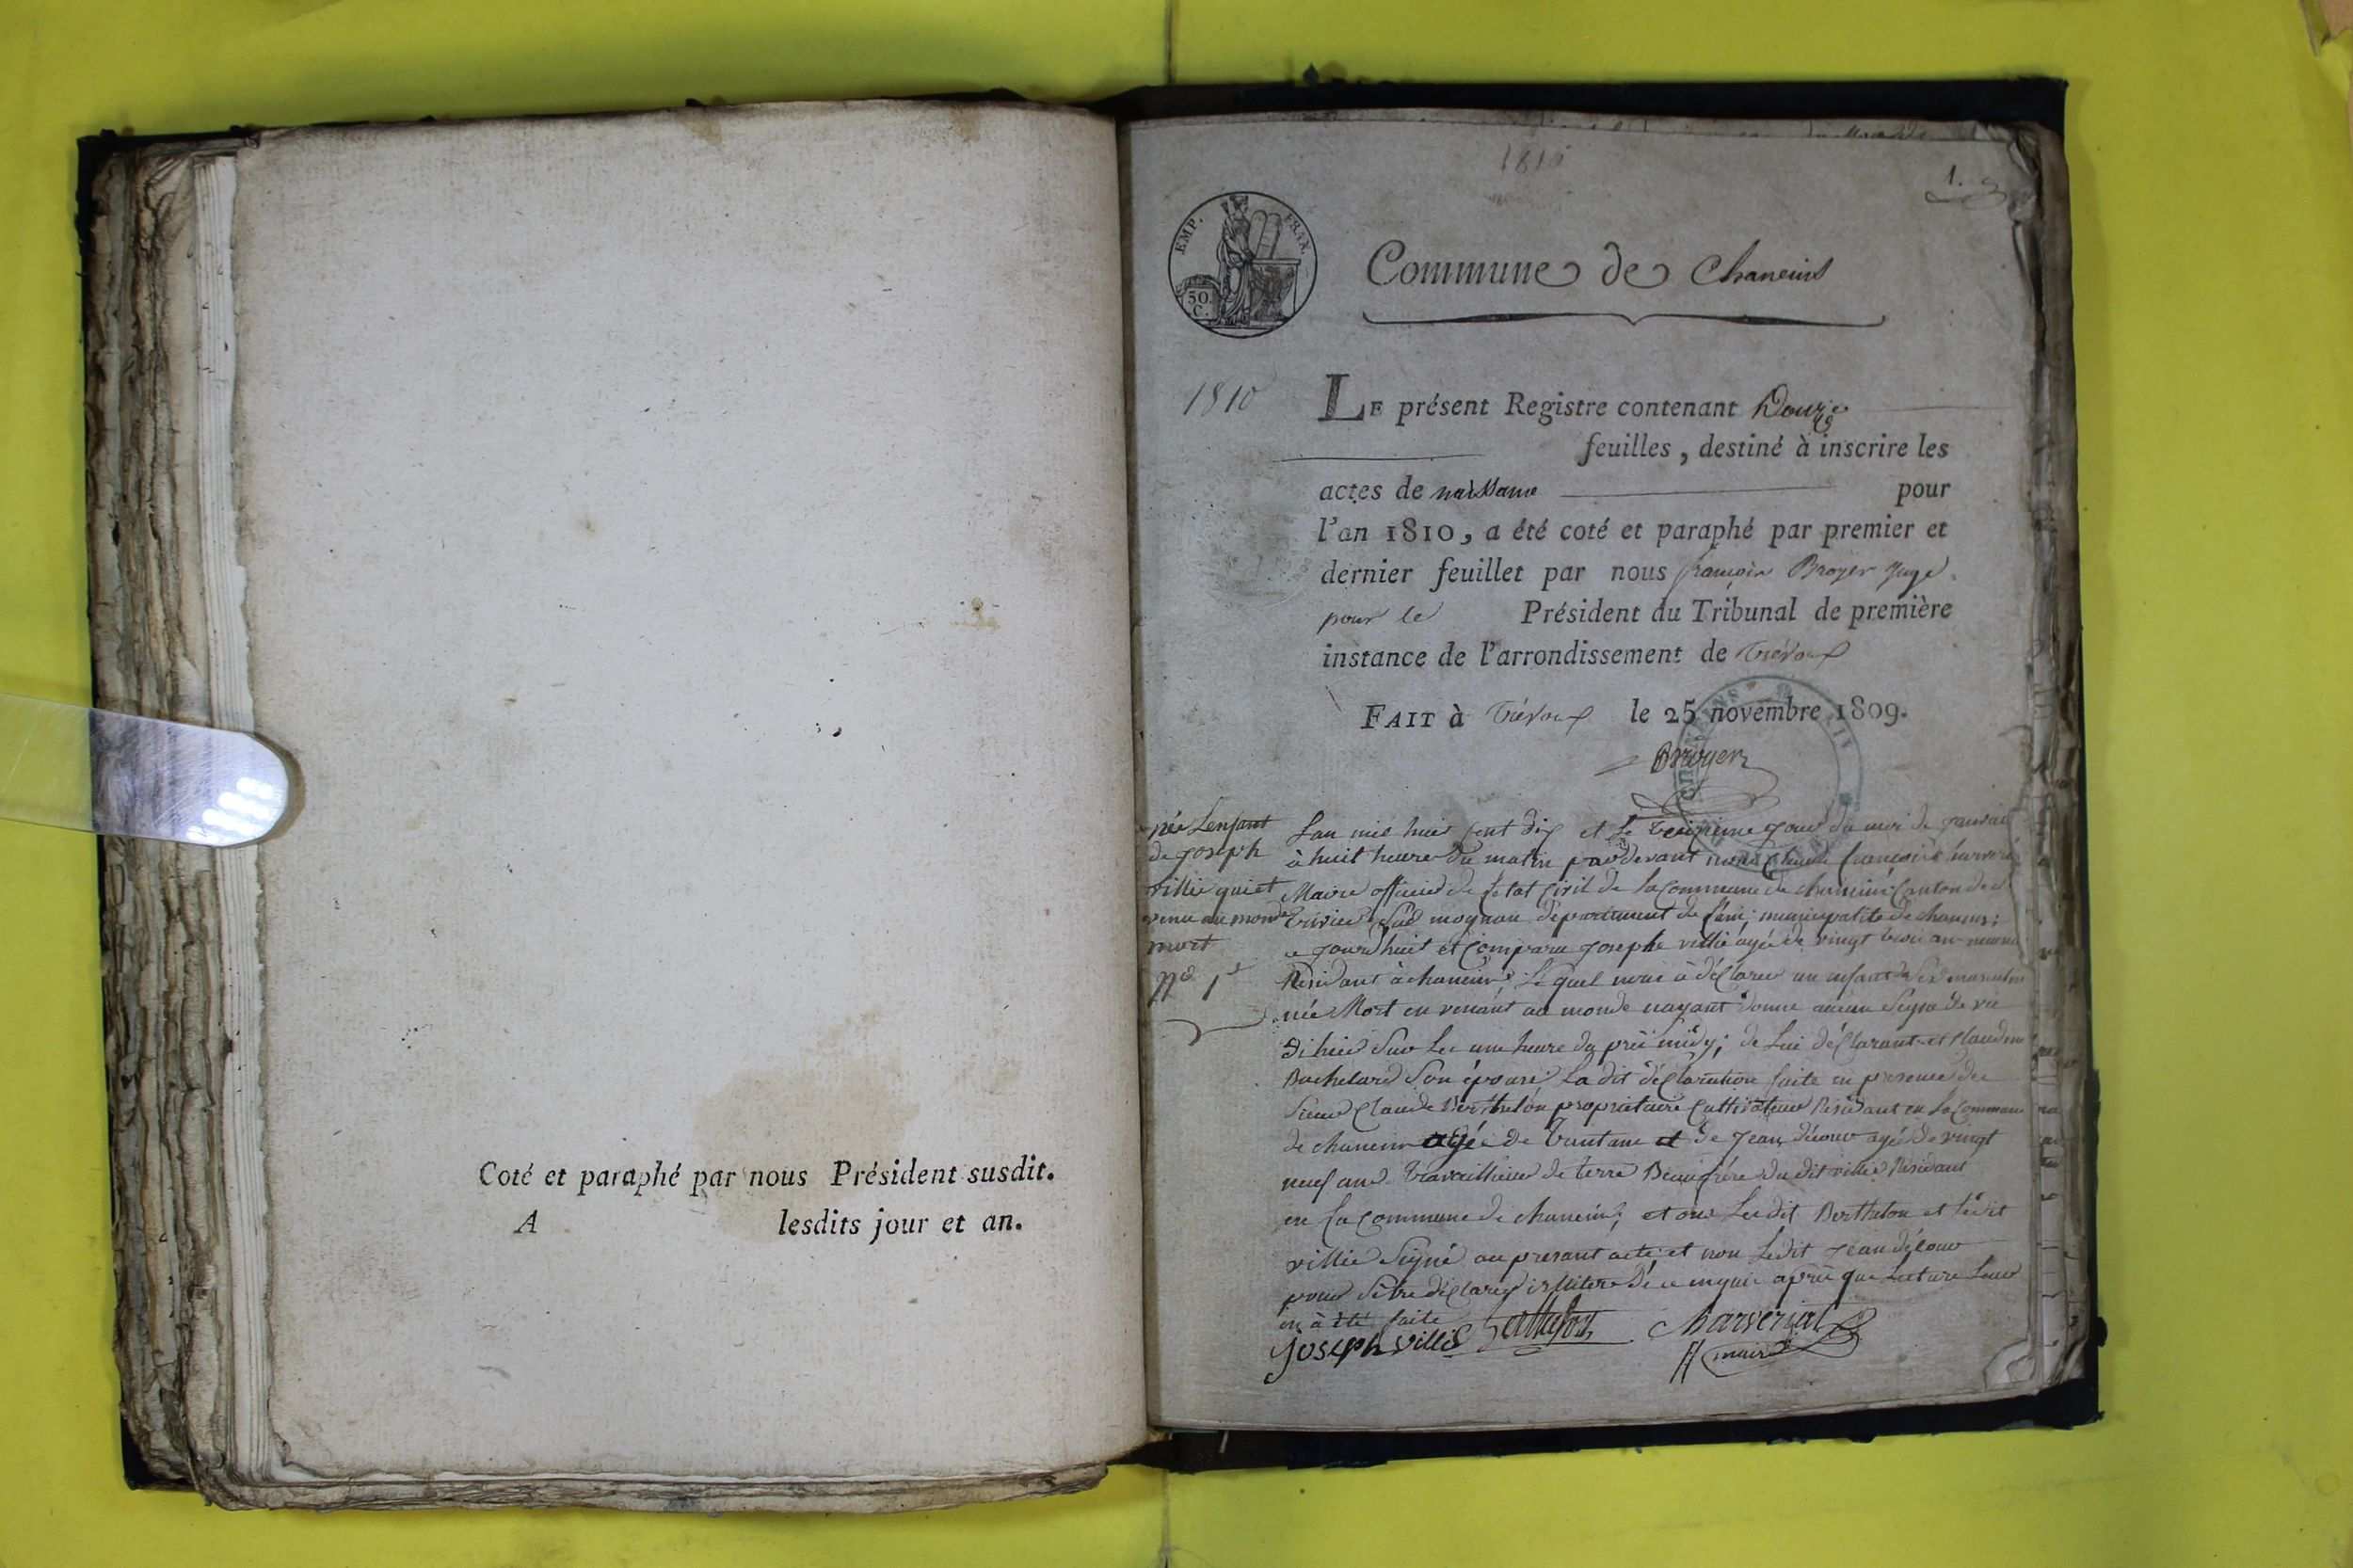 Coté et paraphé par nous Président susdit.
A lesdits jour et an.
1810
1.
EMP. FRAN.
50 C.
Commune de Chaneins
1810
LE présent Registre contenant Douze
feuilles, destiné à inscrire les
actes de naissance pour
l'an 1810, a été coté et paraphé par premier et
dernier feuillet par nous françois Broyer Juge
pour le Président du Tribunal de première
instance de l'arrondissement de Trévoux
FAIT à Trévoux le 25 novembre 1809.
Broyer
née Lenfant
de Joseph
villie qui et
venu au monde
mort
No 1
Lan mil huit cent dix et le treizieme jour du moi de janvier
à huit heure du matin par devant nous Claude françois
Maire officier de letat civil de la Commune de chaneins Canton de
Sur département de municipalité de chaneins
ce jourdhuit et comparu Joseph villié agé de vingt trois an
Residant à chaneins Lequel nous à déclaré un enfant
née Mort en venant au monde nayant donné aucun Signe de vie
di hier Sur les une heure de midy; de Lui déclarant et
Bachelard Son épouse La dit déclaration faite en presence de
Sieur Claude Berthelon propriétaire Cultivateur Residant en la Commune
de chaneins agé de trentane et de Jean agé de vingt
neuf ans travaillieur de terre Beaufrére du dit villié Residant
en la Commune de chaneins, et ont Ledit Berthelon et ledit
villié Signé au presant acte et non Ledit Jean
pour Sétre déclaré de ce enquis aprié que Lecture Leur
en à été faite
Joseph villié
maire